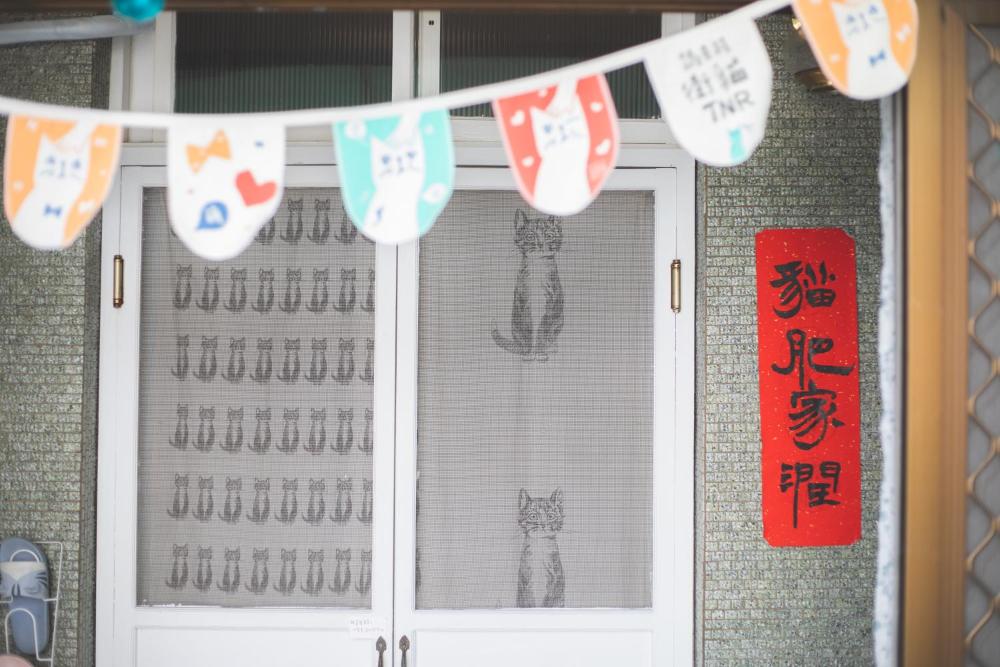 街貓
TNR
貓
肥
家
潤